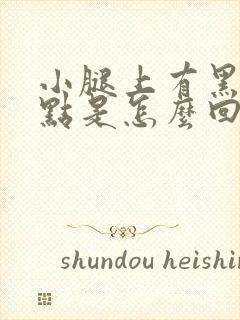 小腿上有黑
點是怎麼回
shundou heishin